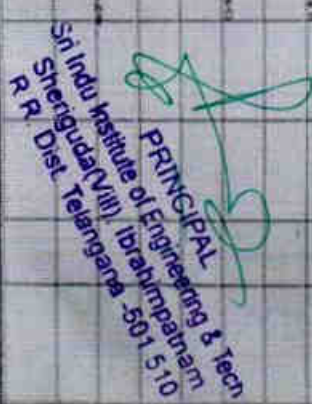 PRINCIPAL
Sri Indu Institute of Engineering & Tech
Sheriguda(Vill), Ibrahimpatnam
R R. Dist. Telangana -501 510